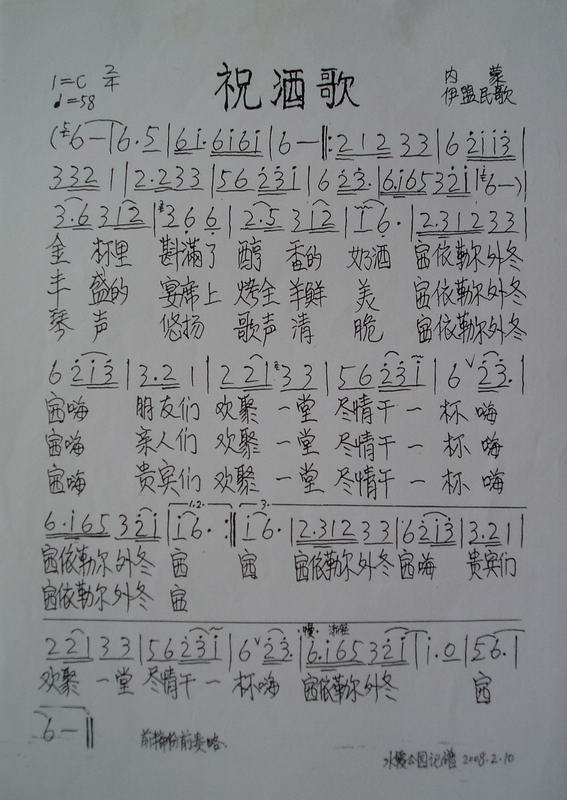 祝酒歌
1=C 2/4
♩=58
内 蒙
伊盟民歌
(6 — | 6. 5 | 6i. 6i6i | 6 — ‖: 212 33 | 6 2ii3 |
332 1 | 2.233 | 56 231 | 6 23. | 6.165 321 | 6 —) |
3.6 312 | 3 6 6 | 2.5 312 | i 6. | 2.312 33 |
金 杯里 斟满了 醇 香的 奶酒 依勒尔外冬
丰 盛的 宴席上 烤全 羊鲜 美 依勒尔外冬
琴 声 悠扬 歌声 清 脆 依勒尔外冬
6 213 | 3.2 1 | 2 21 33 | 56 231 | 6 ∨ 23. |
嗨 朋友们 欢聚 一堂 尽情干 一 杯 嗨
嗨 亲人们 欢聚 一堂 尽情干 一 杯 嗨
嗨 贵宾们 欢聚 一堂 尽情干 一 杯 嗨
6.i65 32i | 1.2. i6. :‖ 3. i6. | 2.312 33 | 6 213 | 3.21 |
依勒尔外冬 依勒尔外冬 嗨 贵宾们
依勒尔外冬
221 33 | 56231 | 6 ∨ 23. | 6.i65 32i | i.0 | 56. |
欢聚 一堂 尽情干 一 杯嗨 依勒尔外冬
6 — ‖
记谱 2008.2.10